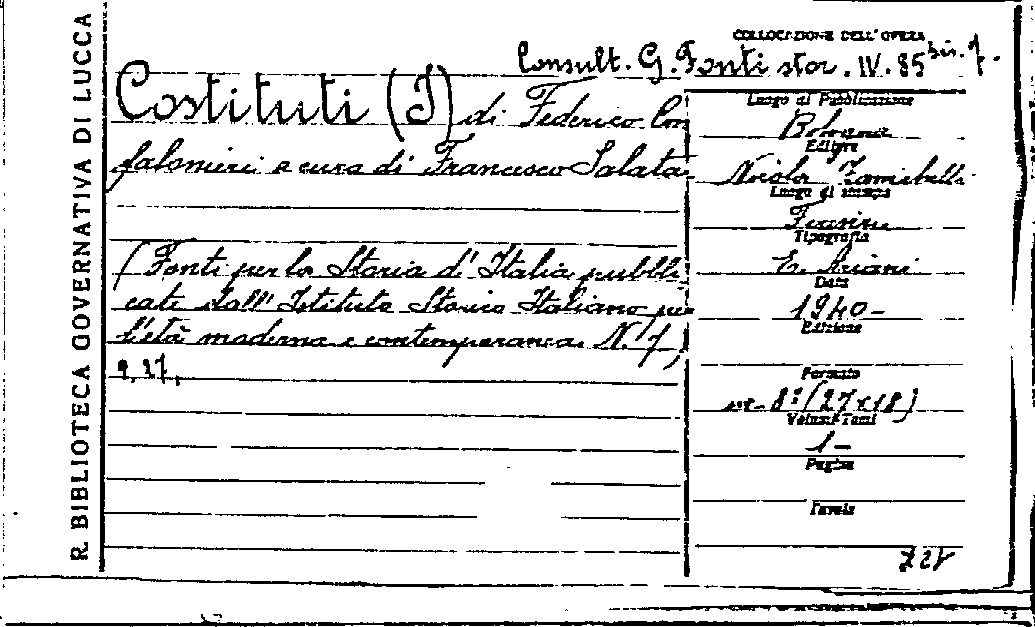 R. BIBLIOTECA GOVERNATIVA DI LUCCA
COLLOCAZIONE DELL'OPERA
Consult. G. Fonti stor. IV. 85 bis. 7.
Costituti (I) di Federico Con
falonieri a cura di Francesco Salata
(Fonti per la Storia d'Italia pubbli
cate dall'Istituto Storico Italiano per
l'età moderna e contemporanea. N. 7,
9, 27,
Luogo di Pubblicazione
Bologna
Editore
Nicola Zanichelli
Luogo di stampa
Tipografia
E. Ariani
Data
1940-
Edizione
Formato
8° (27x18)
Volumi-Tomi
1-
Pagine
Tavole